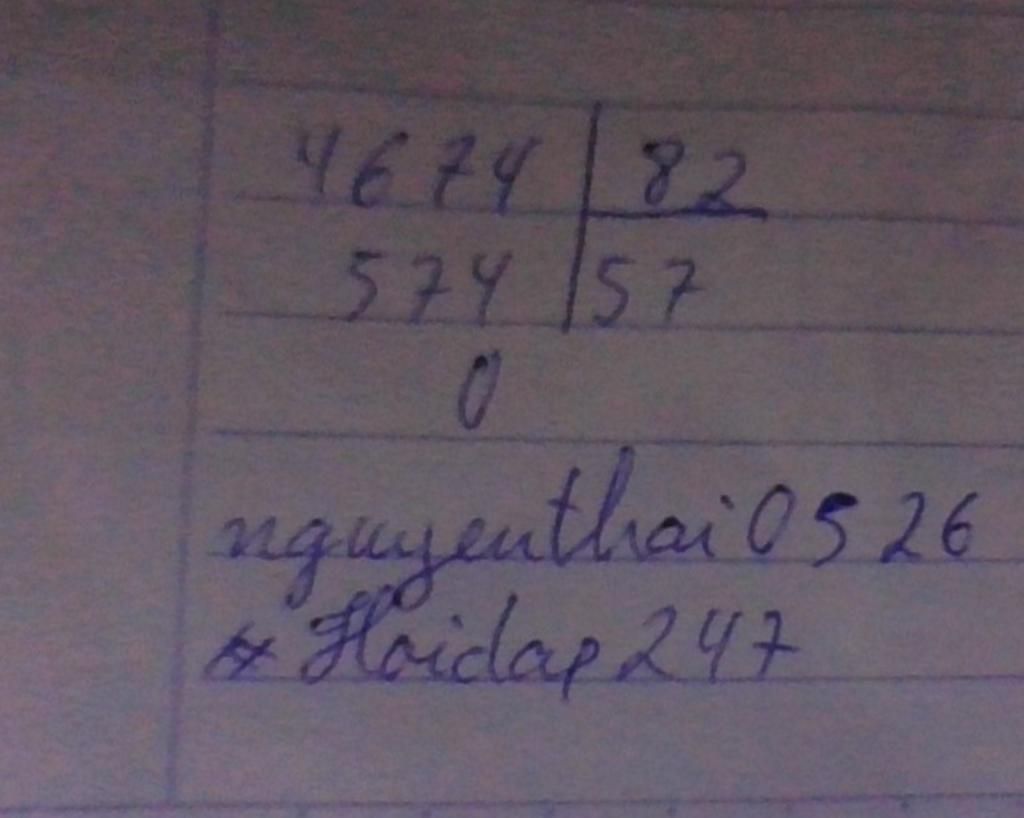 4674 82
574 57
0
nguyenthai0526
Hoidap247